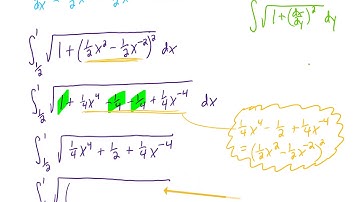 ∫ √(1 + (dx/dy)²) dy
∫_{1/2}^{1} √(1 + (½x² - ½x⁻²)²) dx
∫_{1/2}^{1} √(1 + ¼x⁴ - ¼ - ¼ + ¼x⁻⁴) dx
¼x⁴ - ½ + ¼x⁻⁴
= (½x² - ½x⁻²)²
∫_{1/2}^{1} √(¼x⁴ + ½ + ¼x⁻⁴)
∫ 1 √(